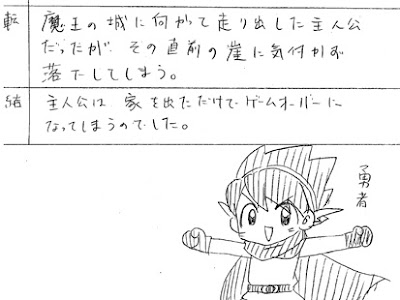 転
魔王の城に向かって走り出した主人公
だったが その直前の崖に気付かず
落下してしまう。
結
主人公は 家を出ただけでゲームオーバーに
なってしまうのでした。
勇者